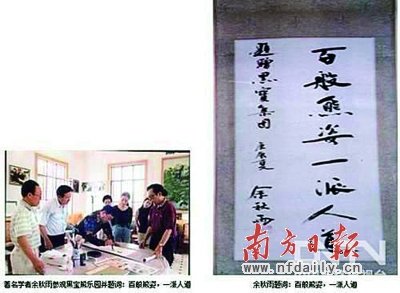 百般熊姿一派人道
題贈黑寶集団
庚辰夏 余秋雨
南方日报
www.nfdaily.cn
著名学者余秋雨参观黑宝熊乐园并题词：百般熊姿，一派人道
余秋雨题词：百般熊姿，一派人道